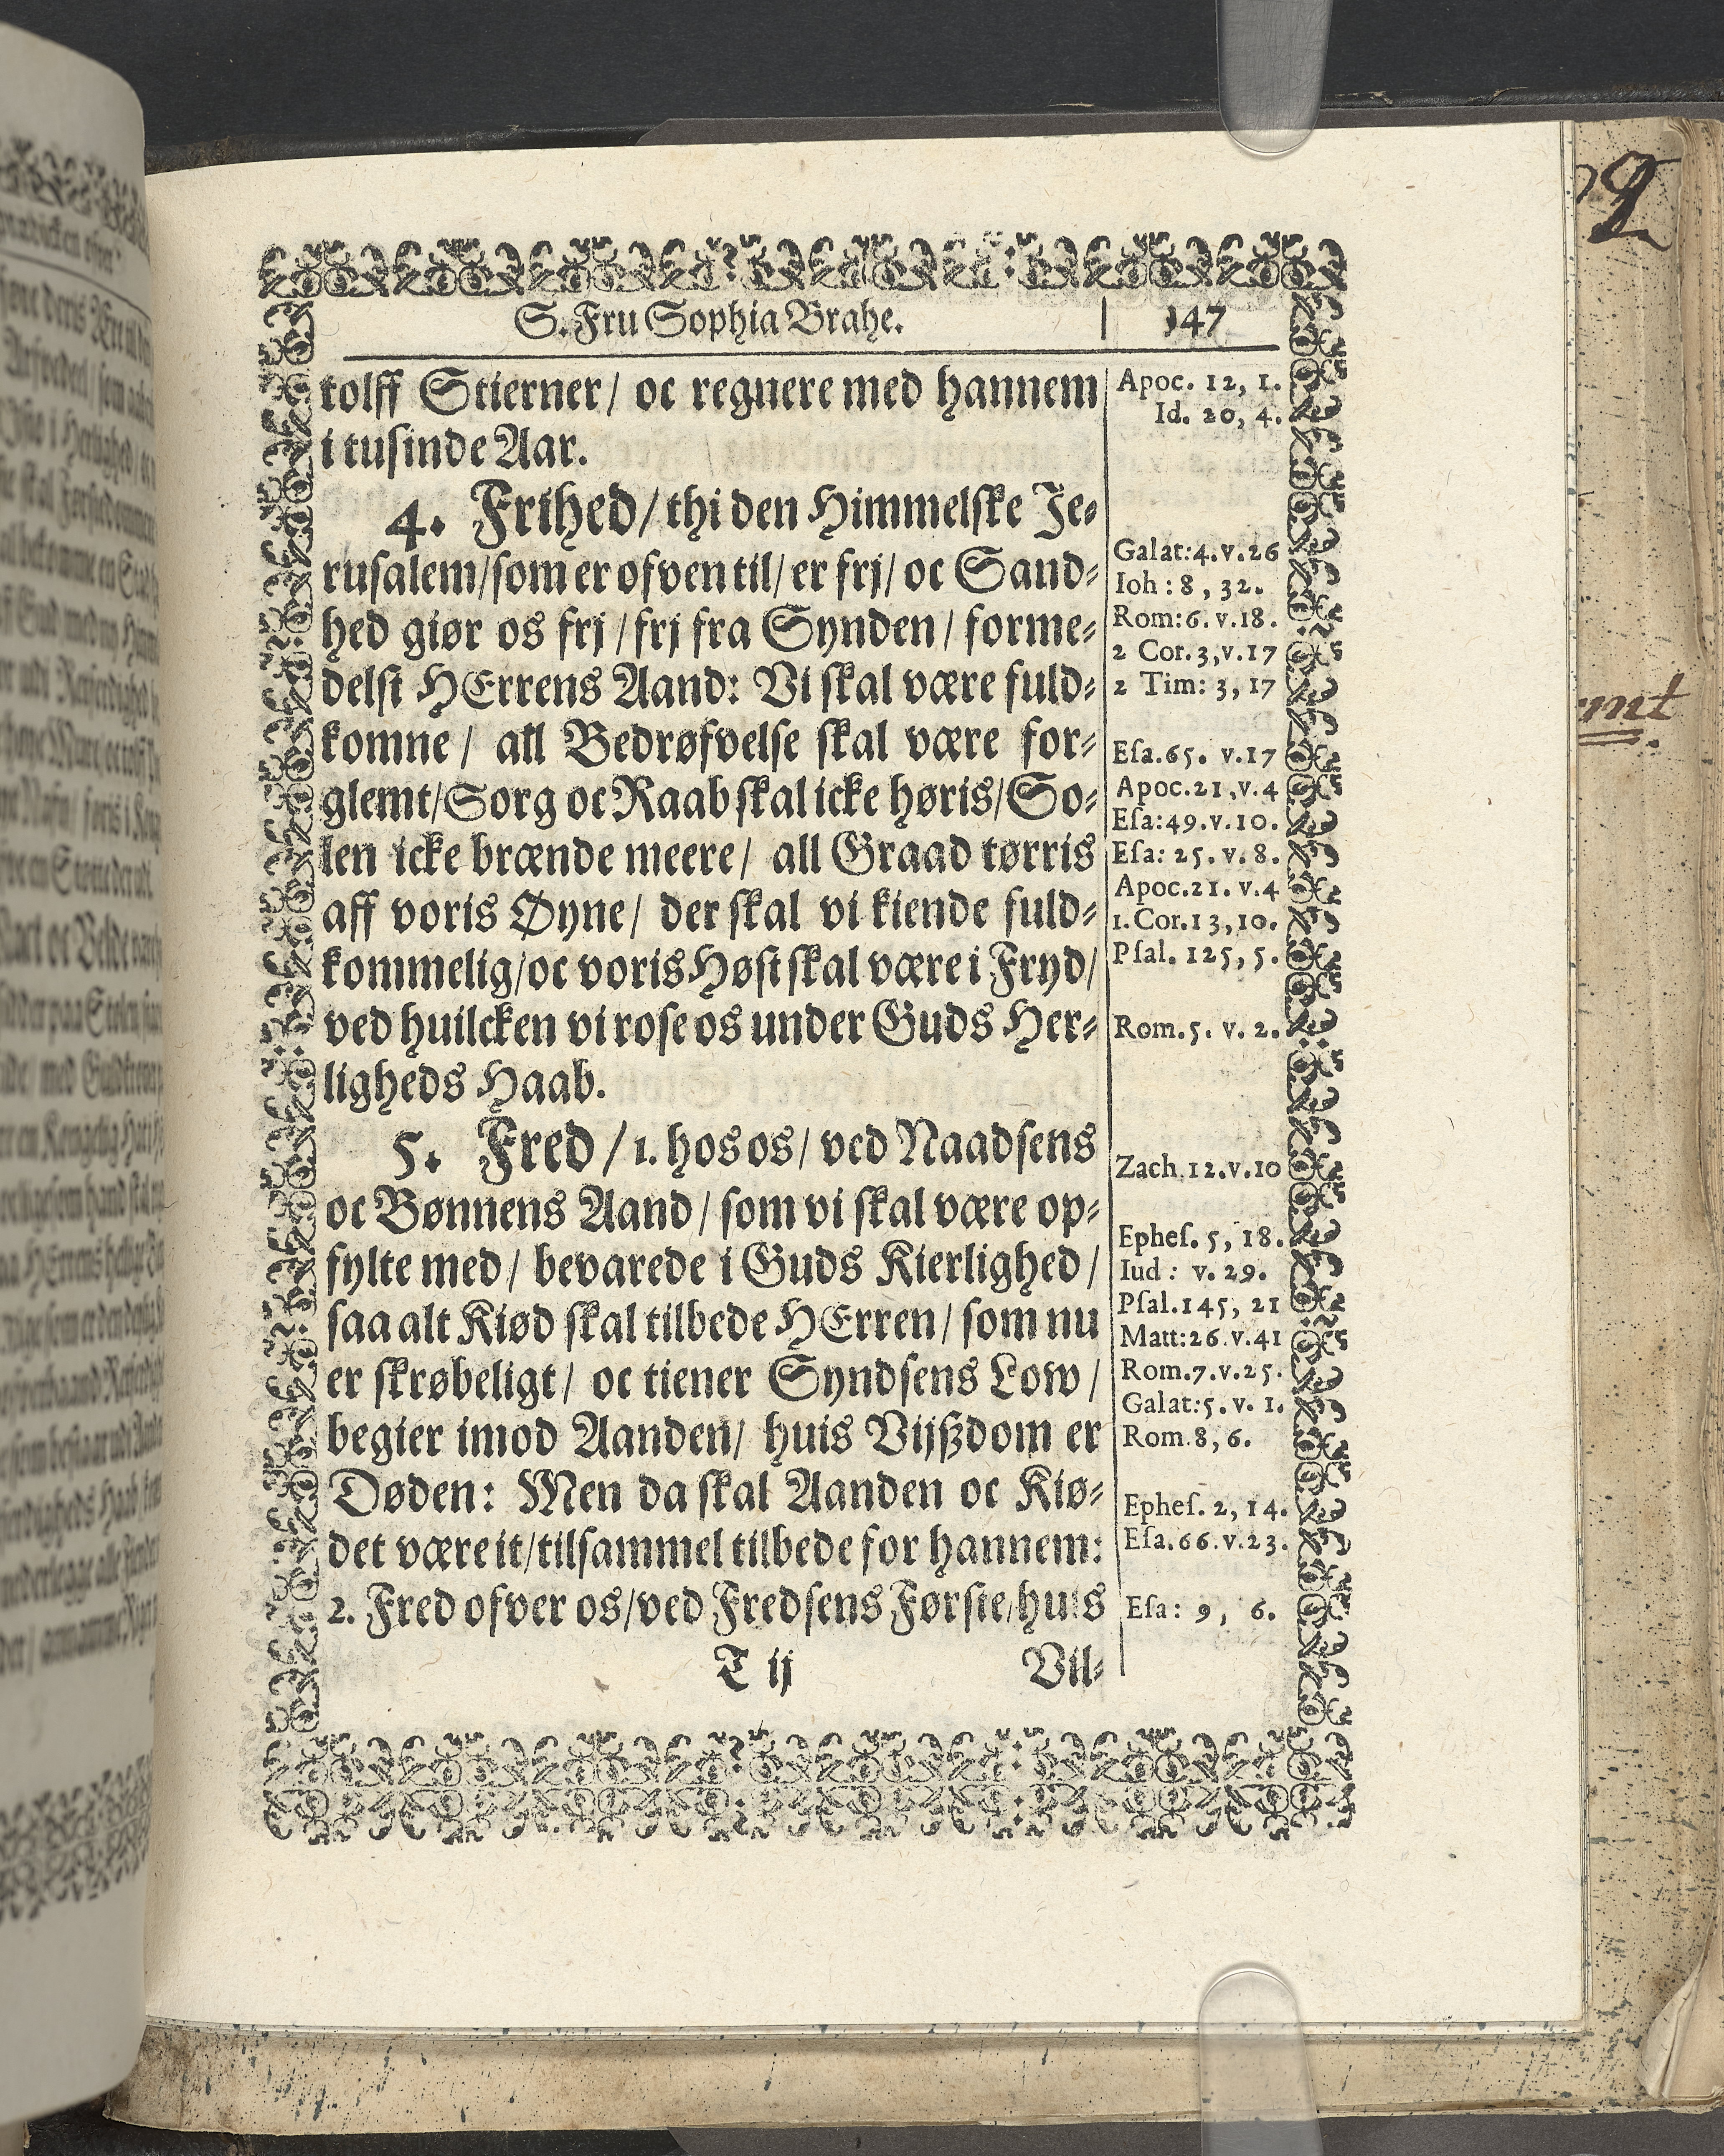 S. Fru Sophia Brahe. 147
tolff Stierner/ oc regnere med hannem
i tusinde Aar.
4. Frihed/ thi den Himmelske Je-
rusalem/ som er ofven til/ er frj/ oc Sand-
hed giør os frj/ frj fra Synden/ forme-
delst HErrens Aand: Vi skal være fuld-
komne/ all Bedrøfvelse skal være for-
glemt/ Sorg oc Raab skal icke høris/ So-
len icke brænde meere/ all Graad tørris
aff voris Øyne/ der skal vi kiende fuld-
kommelig/ oc voris Høst skal være i Fryd/
ved huilcken vi rose os under Guds Her-
ligheds Haab.
5. Fred/ 1. hos os/ ved Naadsens
oc Bønnens Aand/ som vi skal være op-
fylte med/ bevarede i Guds Kierlighed/
saa alt Kiød skal tilbede HErren/ som nu
er skrøbeligt/ oc tiener Syndsens Low/
begier imod Aanden/ huis Vijßdom er
Døden: Men da skal Aanden oc Kiø-
det være it/ tilsammel tilbede for hannem:
2. Fred ofver os/ ved Fredsens Første/ huis
T ij Vil-
Apoc. 12, 1.
Id. 20, 4.
Galat: 4. v. 26
Ioh: 8, 32.
Rom: 6. v. 18.
2 Cor. 3, v. 17
2 Tim: 3, 17
Esa. 65. v. 17
Apoc. 21, v. 4
Esa: 49. v. 10.
Esa: 25. v. 8.
Apoc. 21. v. 4
1. Cor. 13, 10.
Psal. 125, 5.
Rom. 5. v. 2.
Zach. 12. v. 10
Ephes. 5, 18.
Iud: v. 29.
Psal. 145, 21
Matt: 26. v. 41
Rom. 7. v. 25.
Galat: 5. v. 1.
Rom. 8, 6.
Ephes. 2, 14.
Esa. 66. v. 23.
Esa: 9, 6.